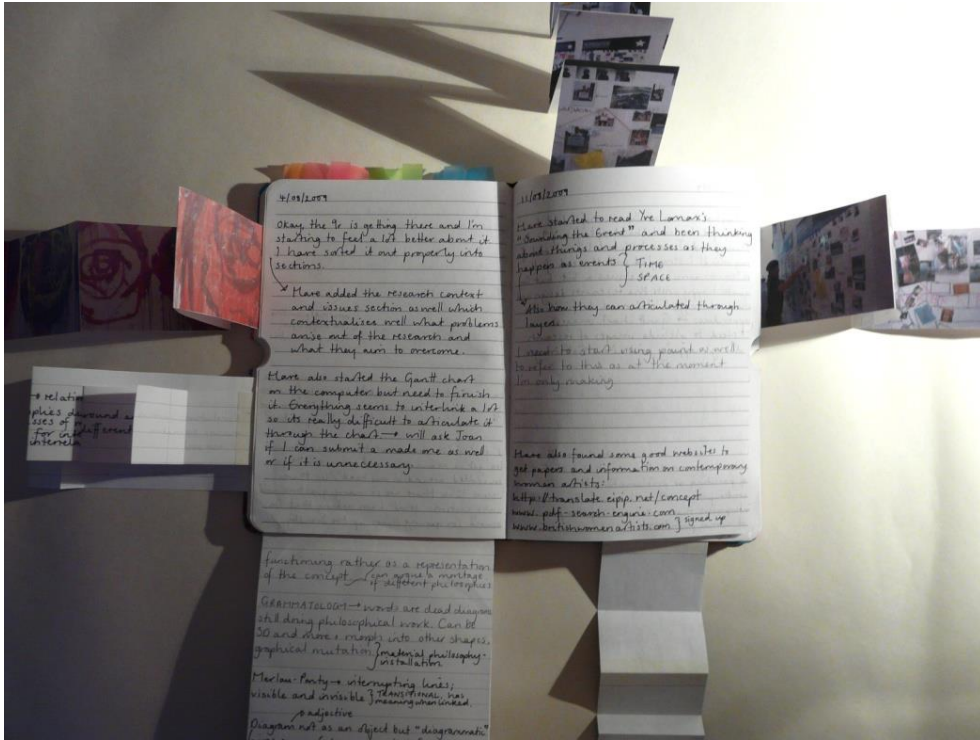 4/08/2009
Okay, the 9r is getting there and I'm
starting to feel a lot better about it
I have sorted it out properly into
sections.
→ Have added the research context
and issues section as well which
contextualises well what problems
arise out of the research and
what they aim to overcome.
Have also started the Gantt chart
on the computer but need to finish
it. Everything seems to interlink a lot
so its really difficult to articulate it
through the chart → will ask Joan
if I can submit a made one as well
or if it is unneccessary.
11/08/2009
Have started to read Yve Lomax's
"Sounding the Event" and been thinking
about things and processes as they
happen as events } TIME
SPACE
Also how they can articulated through
layers.
I need to start using paint as well
to refer to this as at the moment
I'm only making
Have also found some good websites to
get papers and information on contemporary
women artists:
http://translate.eipcp.net/concept
www.pdf-search-engine.com
www.britishwomenartists.com } signed up
→ relati
for in different
interrela
functioning rather as a representation
of the concept can argue a montage
of different philosophies
GRAMMATOLOGY → words are dead diagrams
still doing philosophical work. Can be
3D and more + morph into other shapes,
graphical mutation } material philosophy -
installation.
Merlau-Ponty → interrupting lines;
visible and invisible } TRANSITIONAL, has
meaning when linked.
adjective
Diagram not as an object but "diagrammatic"